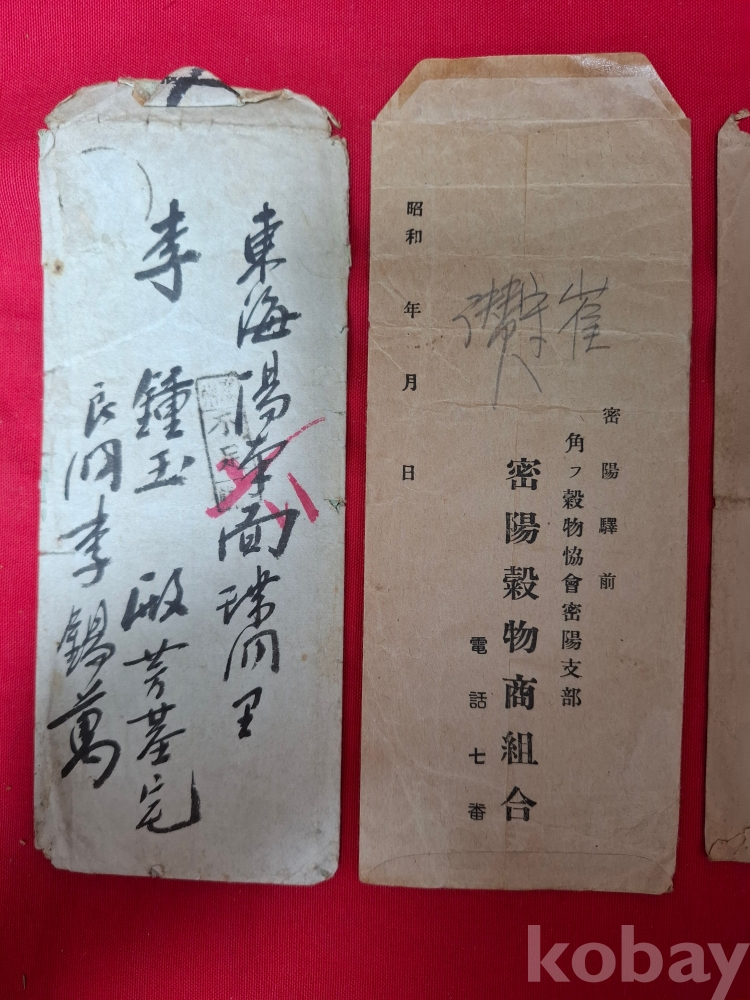 東海陽南面珠洞里
李鍾玉殿芳基宅
良洞李錫萬
不足
崔
密陽驛前
角フ穀物協會密陽支部
密陽穀物商組合
電話七番
昭和 年 月 日
kobay